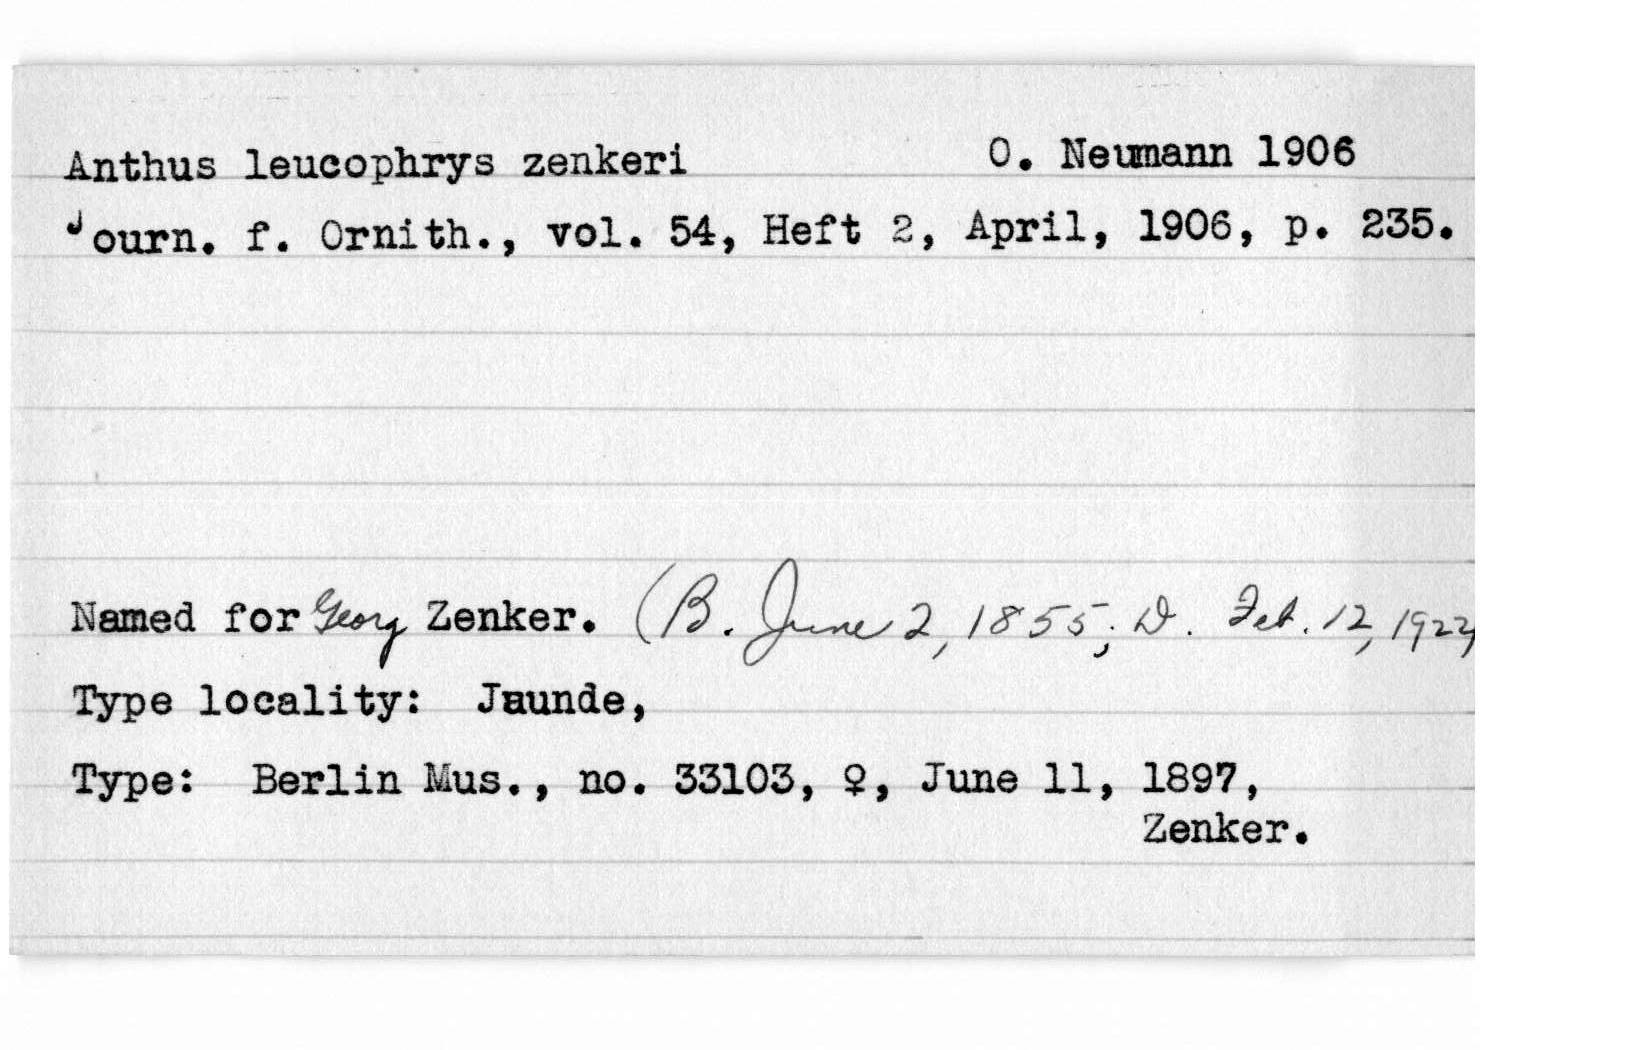 Anthus leucophrys zenkeri O. Neumann 1906
Journ. f. Ornith., vol. 54, Heft 2, April, 1906, p. 235.
Named for Georg Zenker. (B. June 2, 1855; D. Feb. 12, 1922)
Type locality: Jaunde,
Type: Berlin Mus., no. 33103, ♀, June 11, 1897,
Zenker.